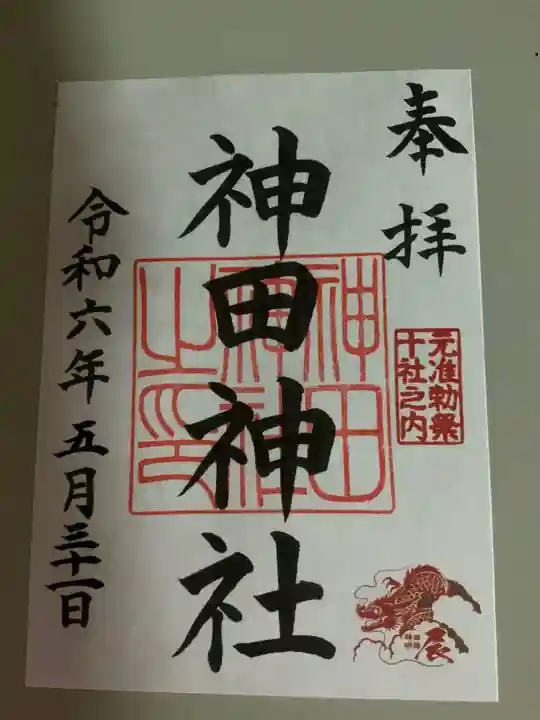 奉拝
元准勅祭
十社之内
神田神社
神田
神社
之印
辰
令和六年五月三十一日